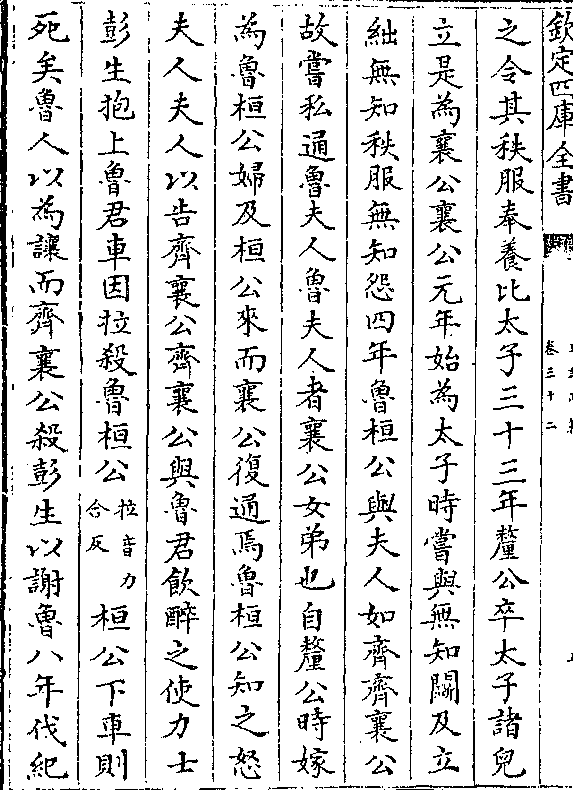 欽定四庫全書
卷三十二
之令其秩服奉養比太子三十三年釐公卒太子諸兒
立是為襄公襄公元年始為太子時嘗與無知鬬及立
絀無知秩服無知怨四年魯桓公與夫人如齊齊襄公
故嘗私通魯夫人魯夫人者襄公女弟也自釐公時嫁
為魯桓公婦及桓公來而襄公復通焉魯桓公知之怒
夫人夫人以告齊襄公齊襄公與魯君飲醉之使力士
彭生抱上魯君車因拉殺魯桓公拉音力合反桓公下車則
死矣魯人以為讓而齊襄公殺彭生以謝魯八年伐紀